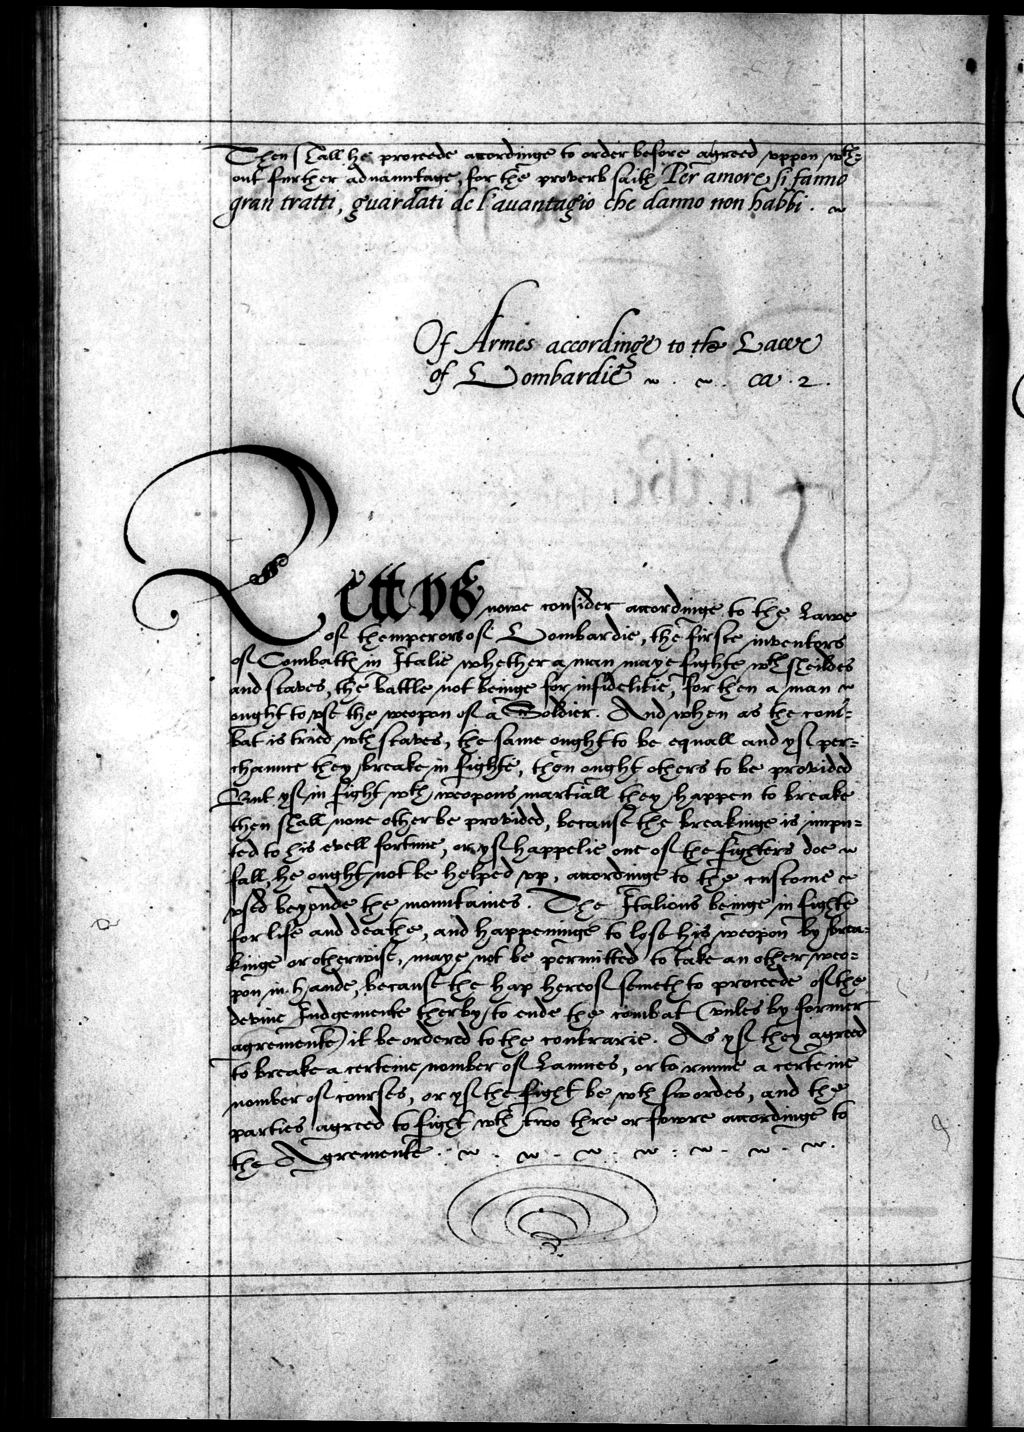 Then shall he proceede accordinge to order before agreed vppon wth-
out further aduauntage, for the proverb saith Per amore si fanno
gran tratti, guardati de l'auantagio che danno non habbi.
Of Armes accordinge to the Lawe
of Lombardie ca. 2.
Lett vs nowe consider accordinge to the Lawe
of themperors of Lombardie, the firste inventors
of Combatts in Italie whether a man maye fighte wth sheildes
and staves, the battle not beinge for infidelitie, for then a man
ought to vse the weopon of a Soldier. And when as the com-
bat is tried wth staves, the same ought to be equall and yf per-
chaunce they breake in fighte, then ought others to be provided
But yf in fight wth weopons martiall they happen to breake
then shall none other be provided, because the breakinge is impu-
ted to his evell fortune, or yf happelie one of the fighters doe
fall, he ought not be helped vp, accordinge to the custome
vsed beyonde the mountaines. The Italions beinge in fighte
for life and deathe, and happeninge to lose his weopon by brea-
kinge or otherwise, maye not be permitted to take an other weo-
pon in hande, because the hap hereof semeth to proceede of the
devine Iudgemente therby to ende the combat (vnles by former
agremente) it be ordered to the contrarie. As yf they agreed
to breake a certeine nomber of Launces, or to runne a certeine
nomber of courses, or yf the fight be wth swordes, and the
parties agreed to fight wth two thre or fowre accordinge to
the Agremente.